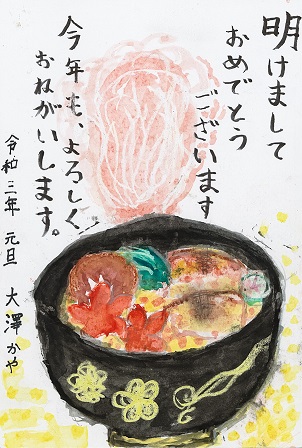 明けまして
おめでとう
ございます
今年も、よろしく
おねがいします。
令和三年 元旦 大澤かや